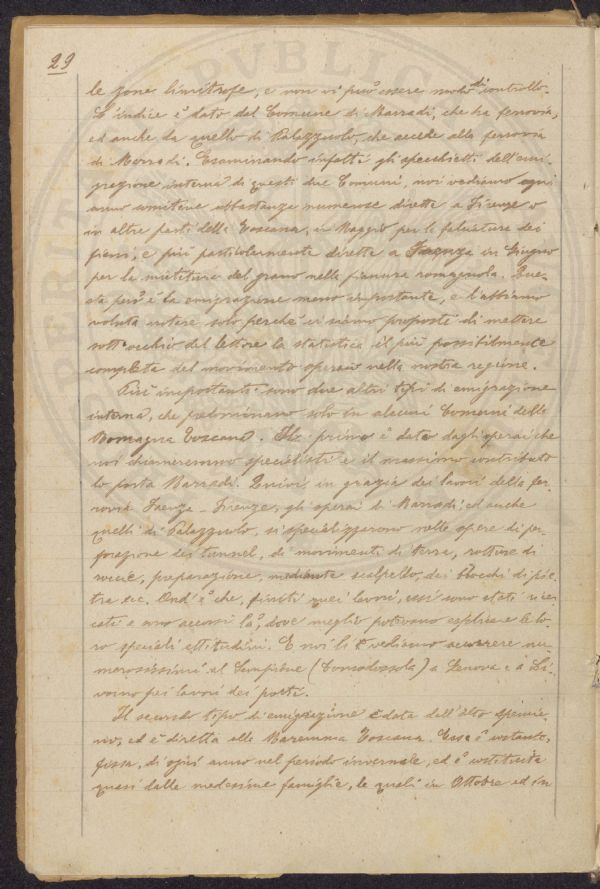 29
le zone limitrofe, e non vi può essere modo di controllo.
L'indice è dato dal Comune di Marradi, che ha ferrovia,
ed anche da quello di Palazzuolo, che accede alla ferrovia
di Marradi. Esaminando infatti gli specchietti dell'emi-
grazione interna di questi due Comuni, noi vediamo ogni
anno comitive abbastanza numerose dirette a Firenze o
in altre parti della Toscana, in Maggio per la falciatura dei
fieni, e più particolarmente dirette a Faenza in Giugno
per la mietitura del grano nella pianura romagnola. Que-
sta però è la emigrazione meno importante, e l'abbiamo
voluta notare solo perchè ci siamo proposti di mettere
sott'occhio del lettore la statistica il più possibilmente
completa del movimento operaio nella nostra regione.
Più importanti sono due altri tipi di emigrazione
interna, che predominano solo in alcuni Comuni della
Romagna Toscana. Il primo è dato dagli operai che
noi chiameremmo specialisti e il massimo contributo
lo porta Marradi. Quivi, in grazia dei lavori della fer-
rovia Faenza - Firenze, gli operai di Marradi ed anche
quelli di Palazzuolo, si specializzarono nelle opere di per-
forazione dei tunnel, di movimenti di terra, rotture di
roccie, preparazione, mediante scalpello, dei blocchi di pie-
tra ecc. Ond'è che, finiti quei lavori, essi sono stati ricer-
cati e sono accorsi là, dove meglio potevano esplicare le lo-
ro speciali attitudini. E noi li vediamo accorrere nu-
merosissimi al Sempione (Domodossola) a Genova e a Li-
vorno pei lavori dei porti.
Il secondo tipo di emigrazione è data dall'alto
ed è diretta alla Maremma Toscana. Essa è costante,
fissa, di ogni anno nel periodo invernale, ed è costituita
quasi dalle medesime famiglie, le quali in Ottobre ed in